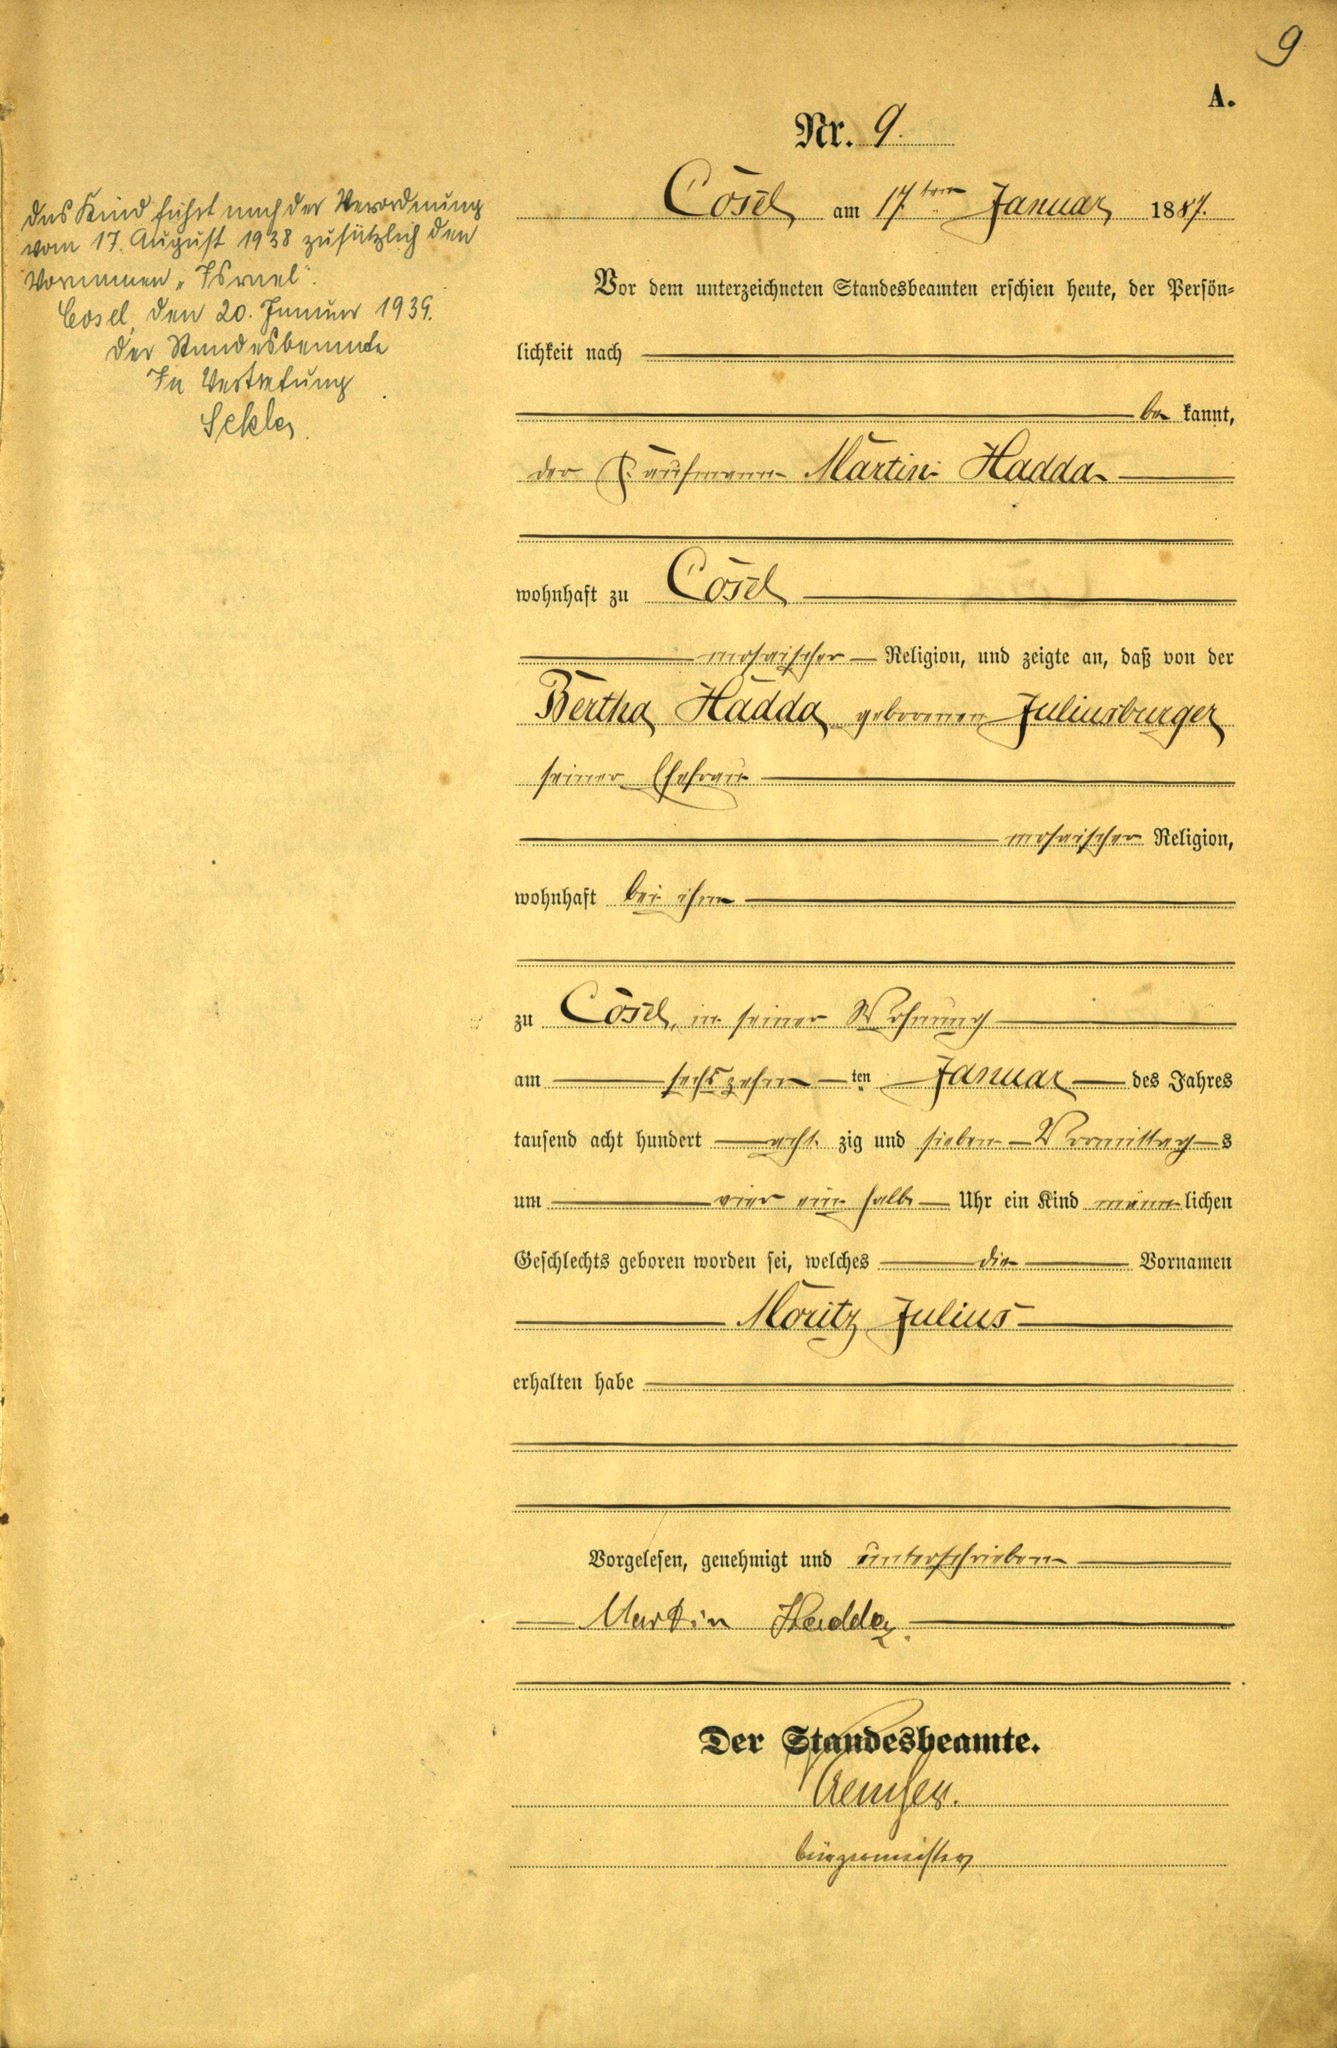 9
A.
Nr. 9.
Cosel am 17ten Januar 1887.
Das Kind führt nach der Verordnung
vom 17. August 1938 zusätzlich den
Vornamen „Israel“.
Cosel, den 20. Januar 1939.
Der Standesbeamte
In Vertretung
Vor dem unterzeichneten Standesbeamten erschien heute, der Persön-
lichkeit nach
be kannt,
der Kaufmann Martin Hadda
wohnhaft zu Cosel
mosaischer Religion, und zeigte an, daß von der
Bertha Hadda geborenen Juliusburger
seiner Ehefrau
mosaischer Religion,
wohnhaft bei ihm
zu Cosel, in seiner Wohnung
am sechszehn ten Januar des Jahres
tausend acht hundert acht zig und sieben Vormittag s
um vier ein halb Uhr ein Kind männ lichen
Geschlechts geboren worden sei, welches die Vornamen
Moritz Julius
erhalten habe
Vorgelesen, genehmigt und unterschrieben
Martin Hadda.
Der Standesbeamte.
Bürgermeister